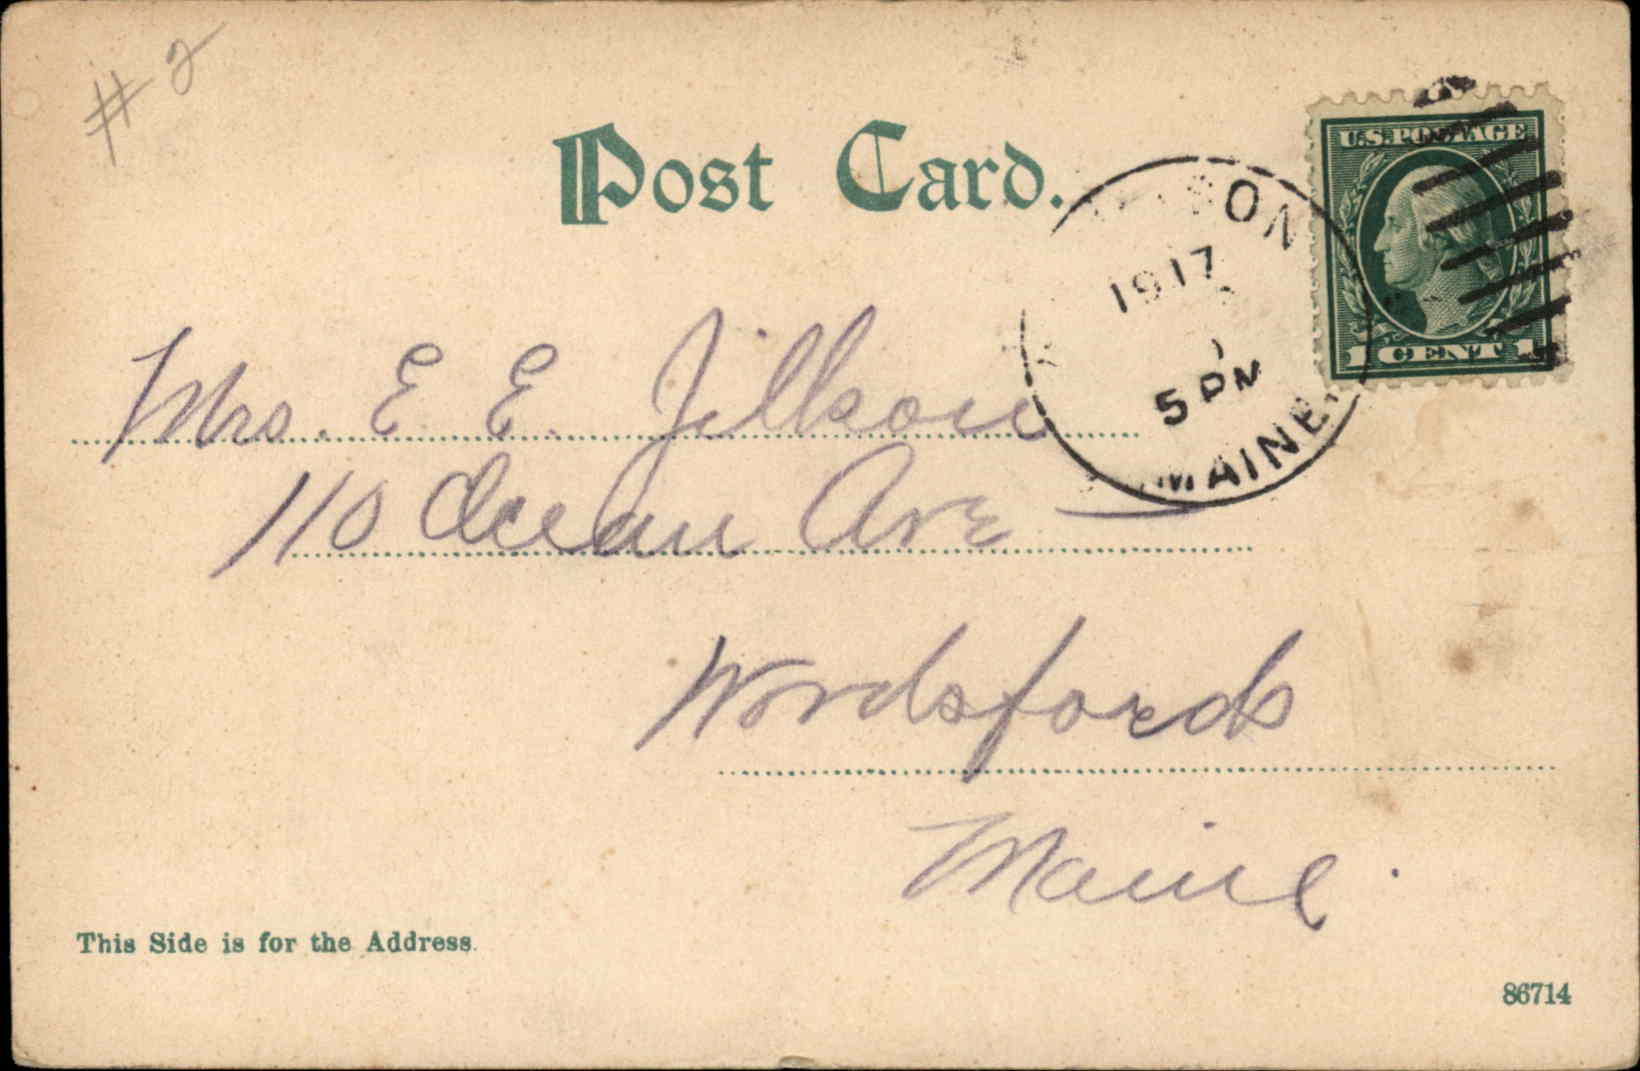 # 2
Post Card.
U.S. POSTAGE
1 CENT 1
1917
5 PM
MAINE.
Mrs. E. E. Jillson
110 Ocean Ave
Wordsfords
Maine.
This Side is for the Address.
86714